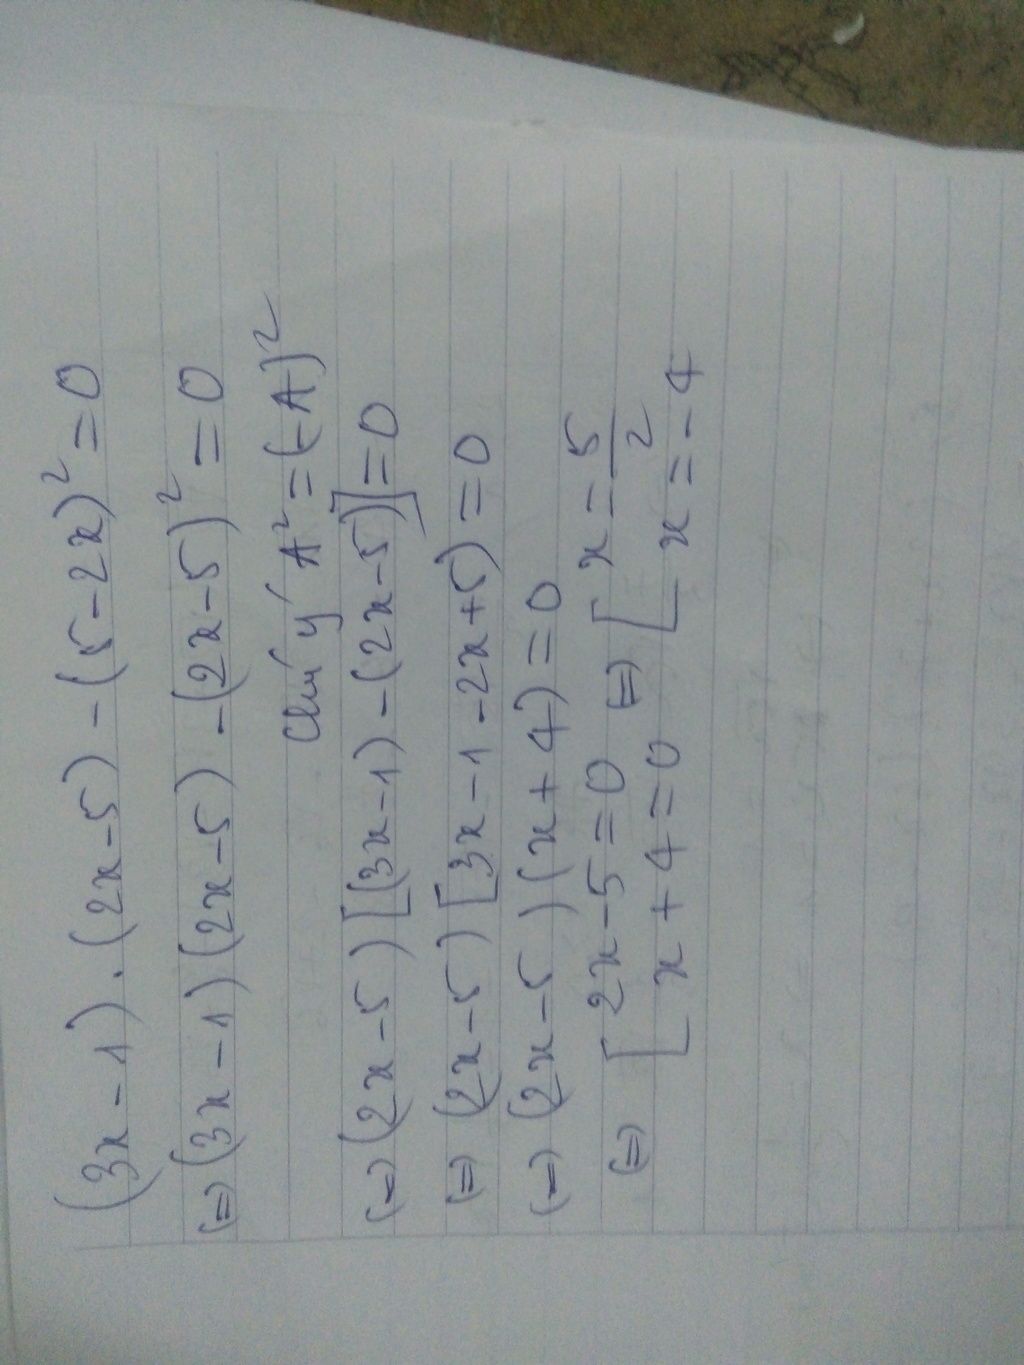 (3x - 1) . (2x - 5) - (5 - 2x)² = 0
(=) (3x - 1) (2x - 5) - (2x - 5)² = 0
Chú ý A² = (-A)²
(=) (2x - 5) [(3x - 1) - (2x - 5)] = 0
(=) (2x - 5) [3x - 1 - 2x + 5) = 0
(=) (2x - 5) (x + 4) = 0
(=) [ 2x - 5 = 0 (=) [ x = 5/2
x + 4 = 0 x = - 4